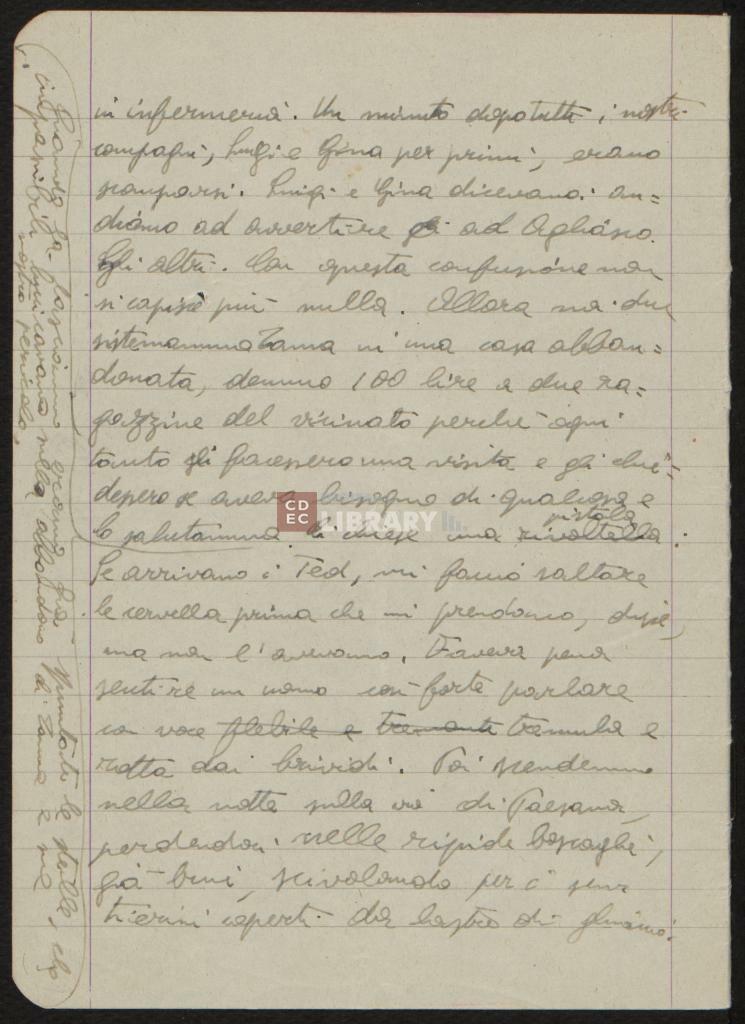 in infermeria. Un minuto dopo tutti i nostri
compagni, Luigi e Gina per primi, erano
scomparsi. Luigi e Gina dicevano: an=
diamo ad avvertire gli ad Agliasco
Gli altri. Con questa confusione non
si capisce più nulla. Allora noi due
sistemammo Zama in una casa abban=
donata, demmo 100 lire a due ra=
gazzine del vicinato perchè ogni
tanto gli facessero una visita e gli chie=
dessero se aveva bisogno di qualcosa e
lo salutammo. Ci chiese una rivoltella
pistola
Se arrivano i Ted, mi faccio saltare
le cervella prima che mi prendono, disse,
ma non l'avevamo. Faceva pena
sentire un uomo così forte parlare
con voce flebile e tremante tremula e
rotta dai brividi. Poi scendemmo
nella notte sulla via di Paesana,
perdendoci nelle ripide boscaglie,
già brui, scivolando per i sen
tierini coperti da lastre di ghiaccio.
Quando la lasciammo erano già spuntate le stelle, che
impassibili luccicavano sulla abbandono di Zama e sul
nostro pericolo.
CDEC LIBRARY